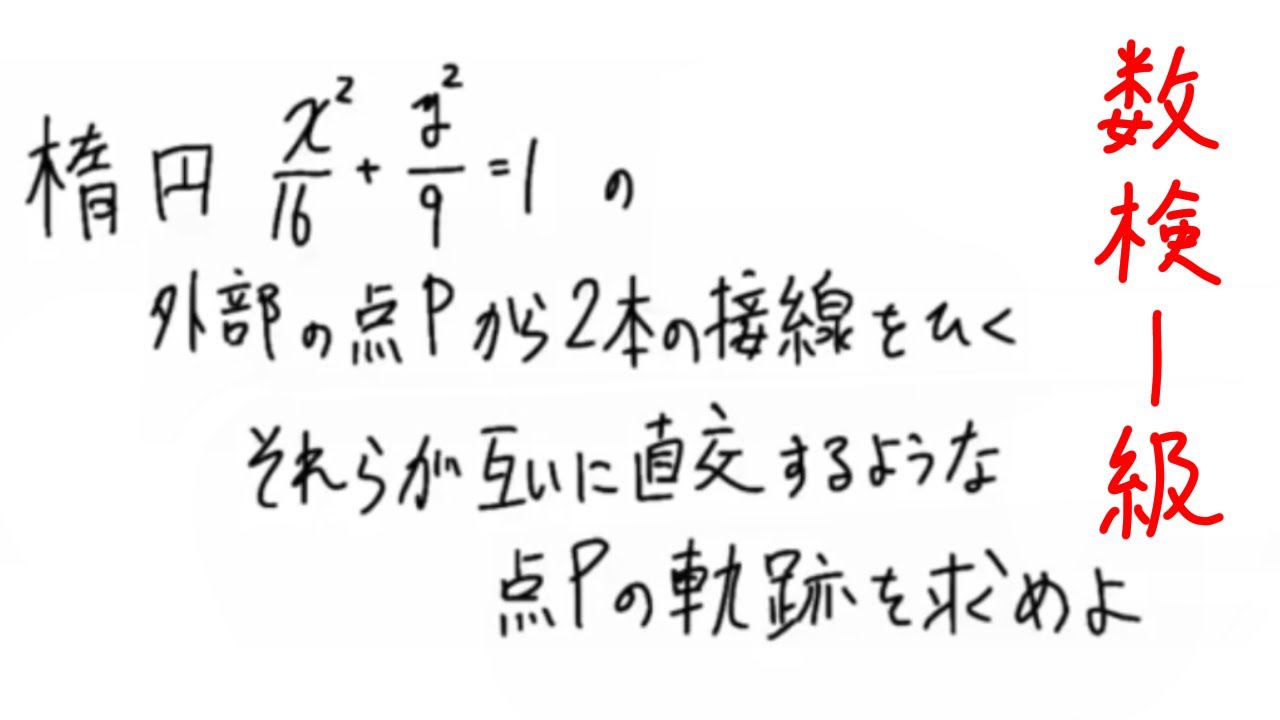 楕円 x²/16 + y²/9 = 1 の
外部の点Pから2本の接線をひく
それらが互いに直交するような
点Pの軌跡を求めよ
数検1級